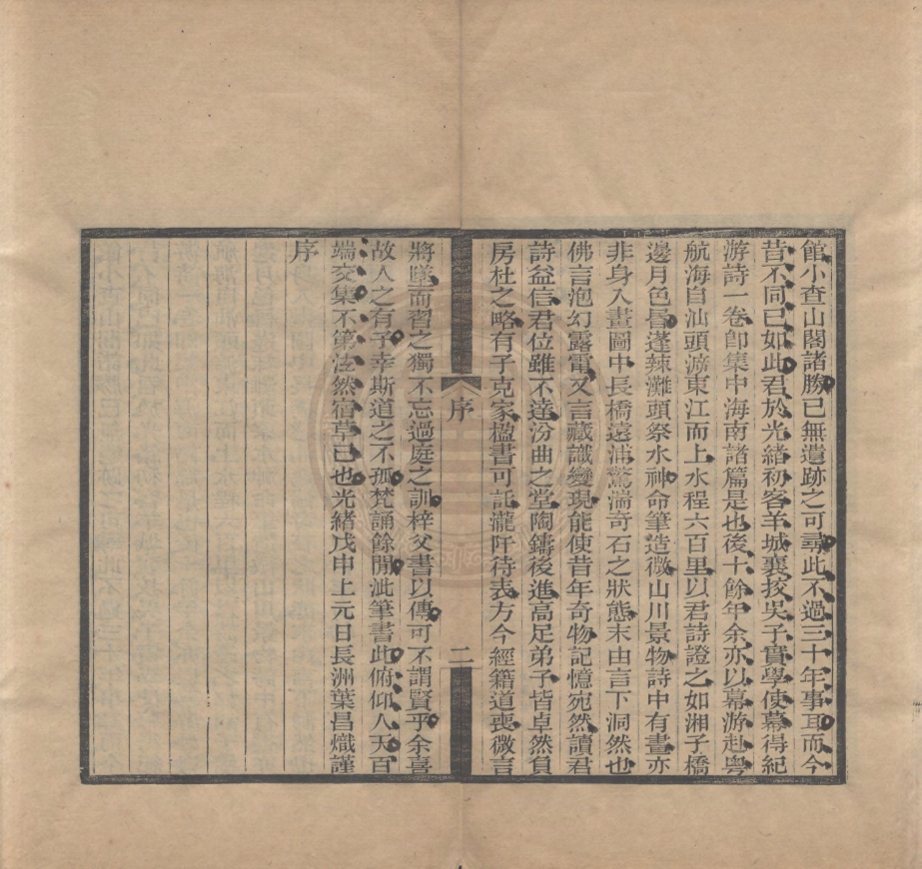 館小查山閣諸勝已無遺跡之可尋此不過三十年事耳而今
昔不同已如此君於光緒初客羊城襄挍吳子實學使幕得紀
游詩一卷卽集中海南諸篇是也後十餘年余亦以幕游赴粵
航海自汕頭游東江而上水程六百里以君詩證之如湘子橋
邊月色昬蓬辣灘頭祭水神命筆造微山川景物詩中有畫亦
非身入畫圖中長橋遠浦驚湍奇石之狀態末由言下洞然也
佛言泡幻露電又言藏識變現能使昔年奇物記憶宛然讀君
詩益信君位雖不達汾曲之堂陶鑄後進高足弟子皆卓然負
房杜之略有子克家楹書可託瀧阡待表方今經籍道喪微言
序
二
將墜而習之獨不忘過庭之訓梓父書以傳可不謂賢乎余喜
故人之有子幸斯道之不孤梵誦餘閒泚筆書此俯仰人天百
端交集不第泫然宿草已也光緒戊申上元日長洲葉昌熾謹
序